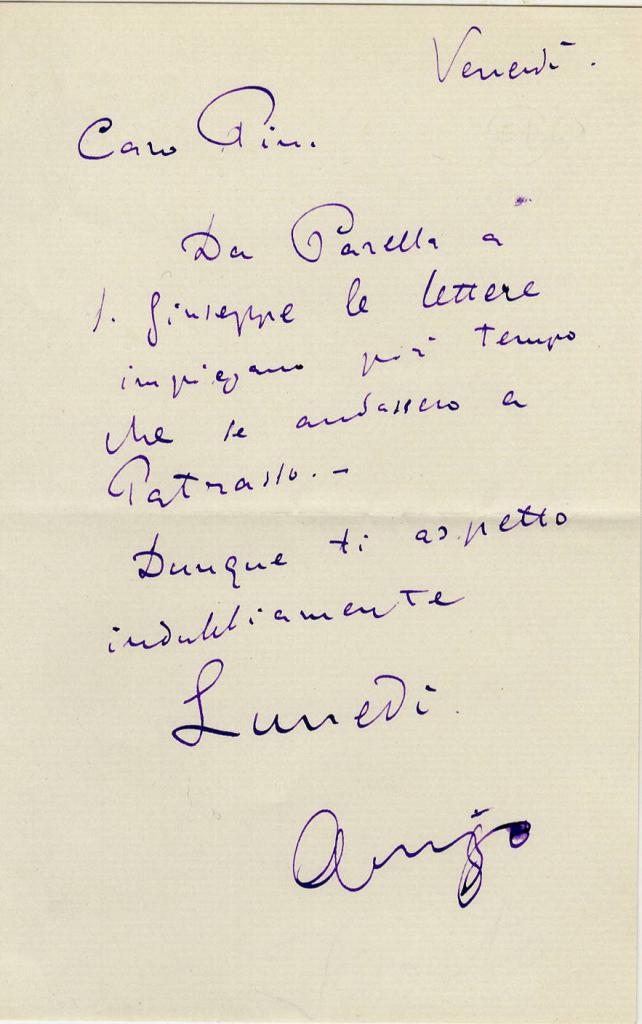 Venerdì.
Caro Pin.
Da Parella a
S. Giuseppe le lettere
impiegano più tempo
che se andassero a
Patrasso. -
Dunque ti aspetto
indubbiamente
Lunedì.
Arrigo